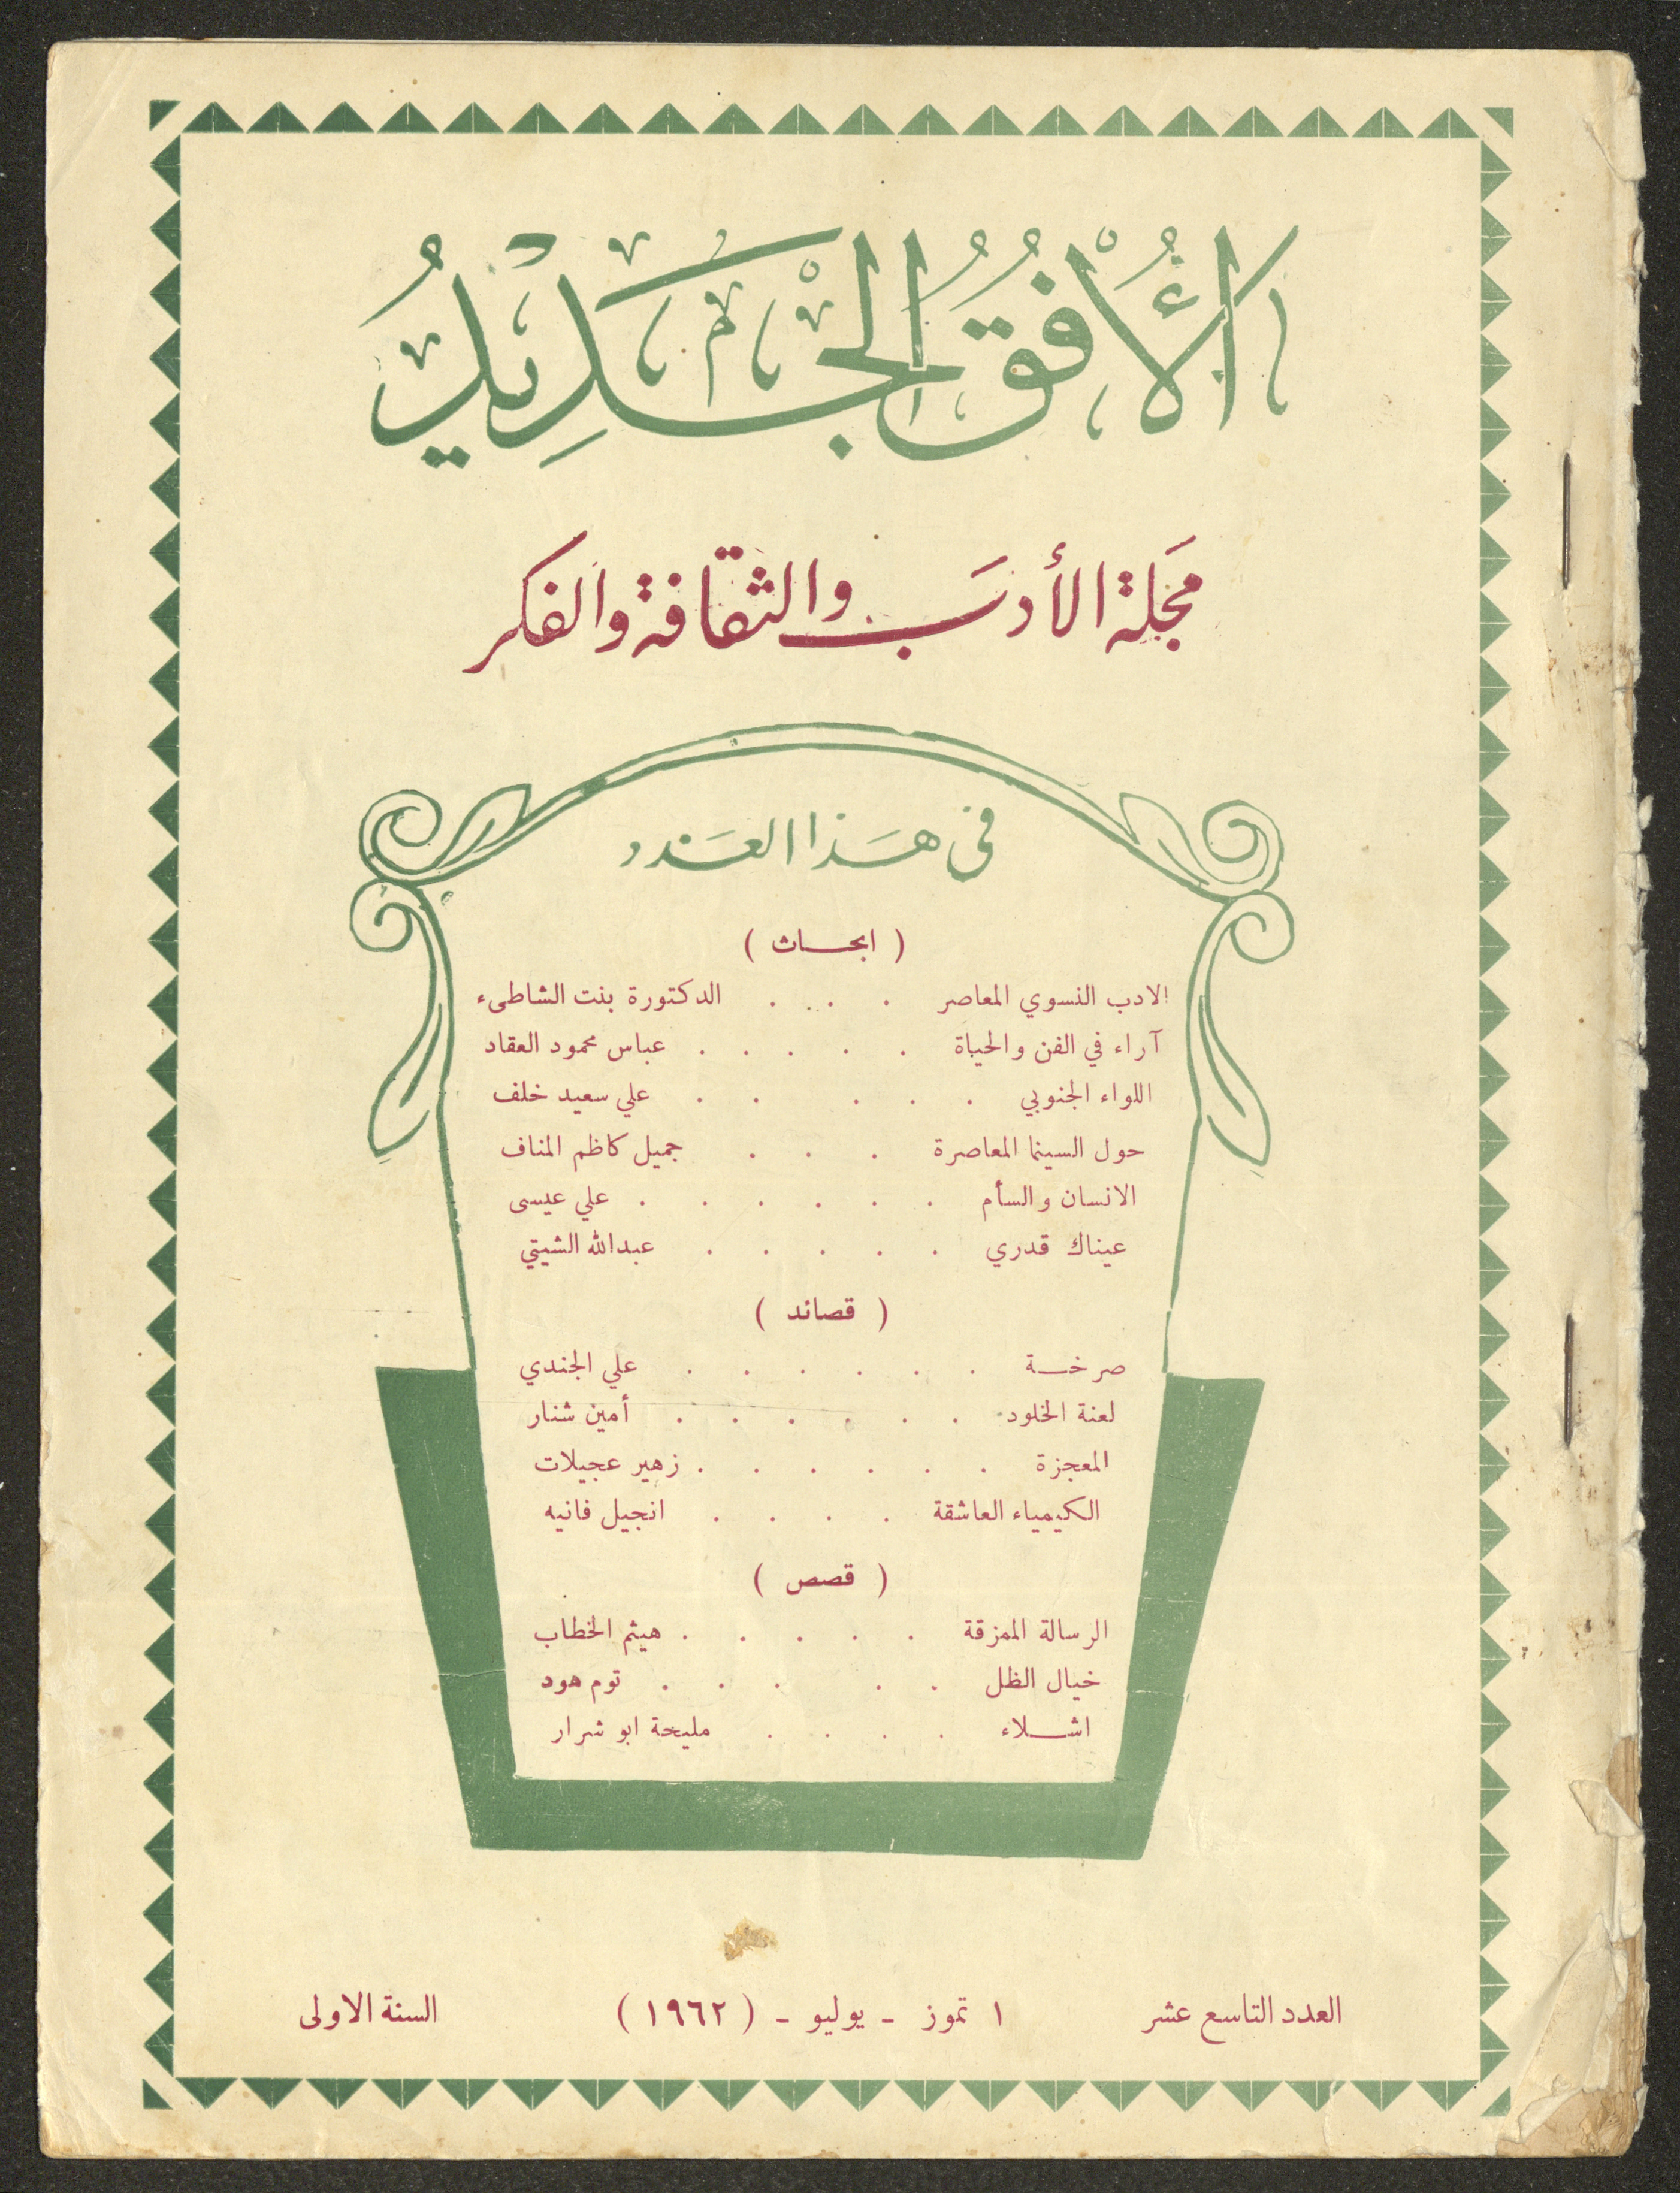 الأُفُقُ الجَدِيدُ
مَجَلة الأدَب والثقافة والفكر
في هَذا العَدد
( ابحـاث )
الادب النسوي المعاصر . . . . الدكتورة بنت الشاطىء
آراء في الفن والحياة . . . . . عباس محمود العقاد
اللواء الجنوبي . . . . . علي سعيد خلف
حول السينما المعاصرة . . . جميل كاظم المناف
الانسان والسأم . . . . . . علي عيسى
عيناك قدري . . . . . عبدالله الشيتي
( قصائد )
صرخـة . . . . . . علي الجندي
لعنة الخلود . . . . . . أمين شنار
المعجزة . . . . . . زهير عجيلات
الكيمياء العاشقة . . . . انجيل فانيه
( قصص )
الرسالة الممزقة . . . . . هيثم الخطاب
خيال الظل . . . . . توم هود
اشـلاء . . . . مليحة ابو شرار
العدد التاسع عشر ١ تموز - يوليو - ( ١٩٦٢ ) السنة الاولى